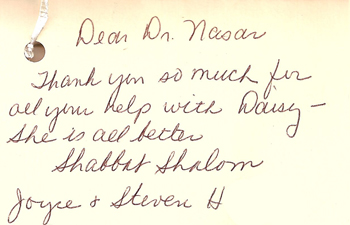 Dear Dr. Nasar
Thank you so much for
all your help with Daisy –
She is all better
Shabbat Shalom
Joyce & Steven H